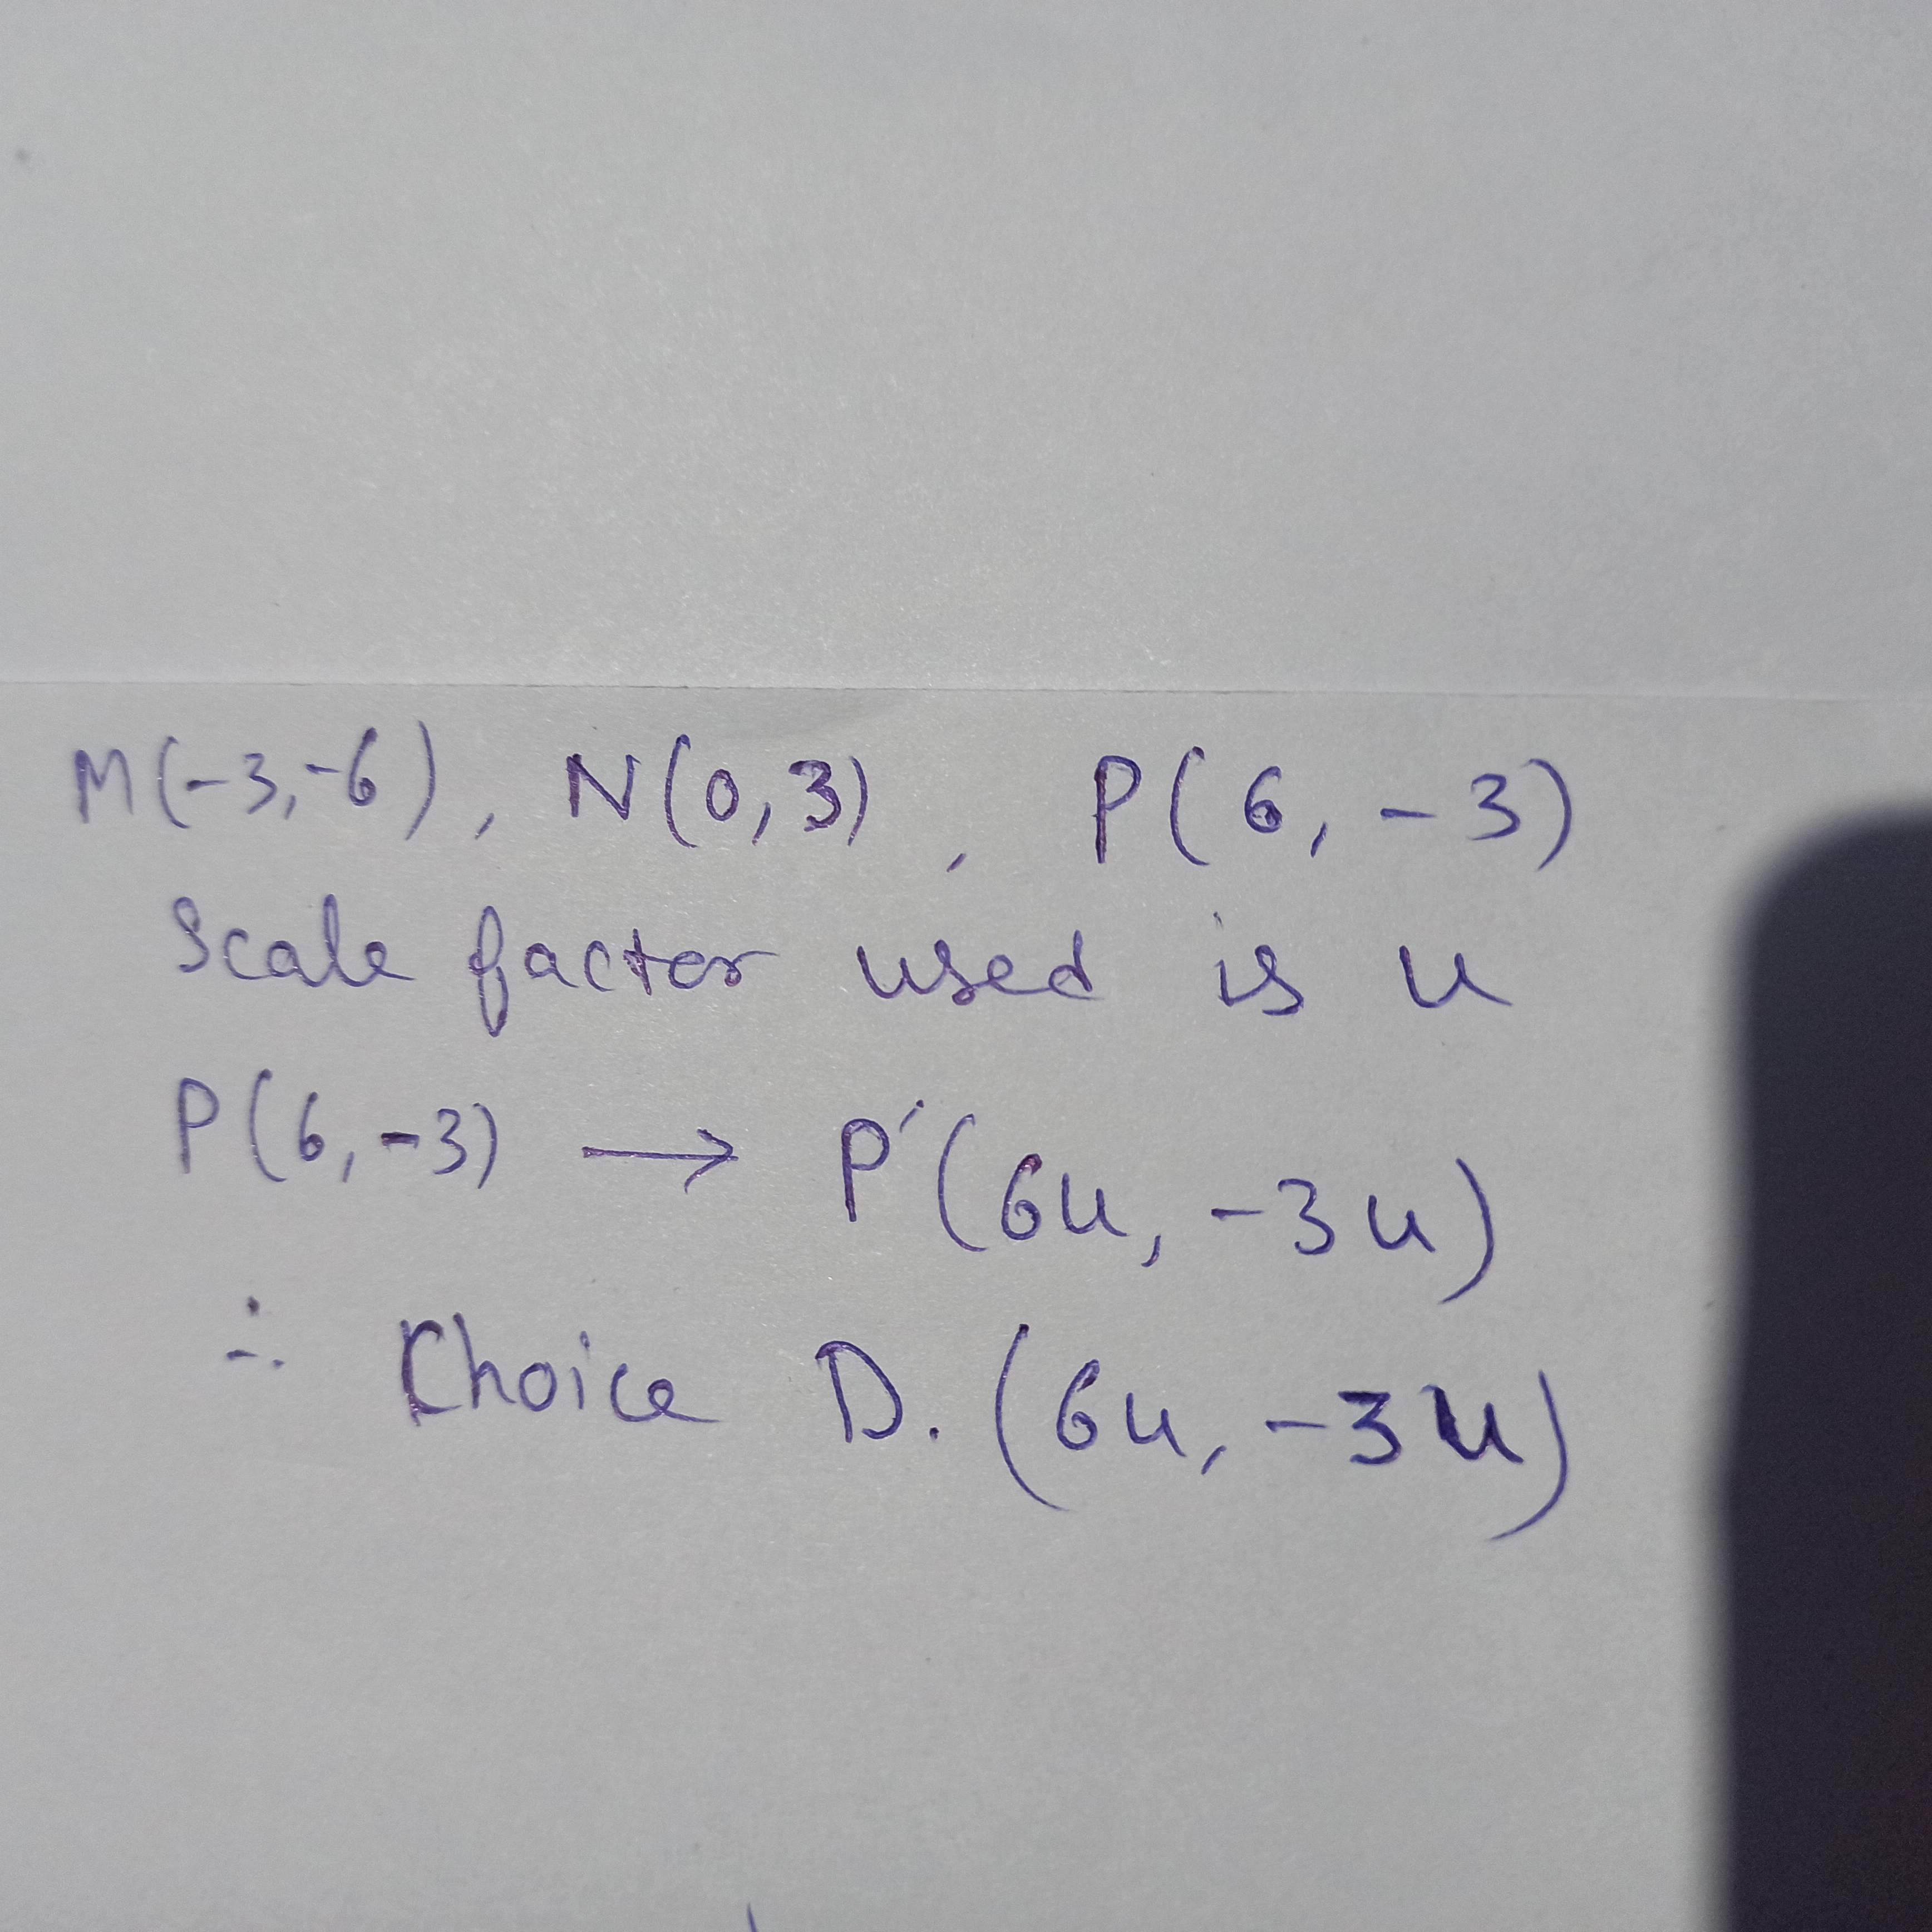 M(-3,-6), N(0,3), P(6,-3)
Scale factor used is u
P(6,-3) → P'(6u, -3u)
∴ Choice D. (6u, -3u)